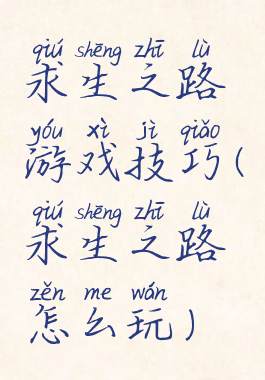 qiú shēng zhī lù
求生之路
yóu xì jì qiǎo
游戏技巧(
qiú shēng zhī lù
求生之路
zěn me wán
怎么玩)